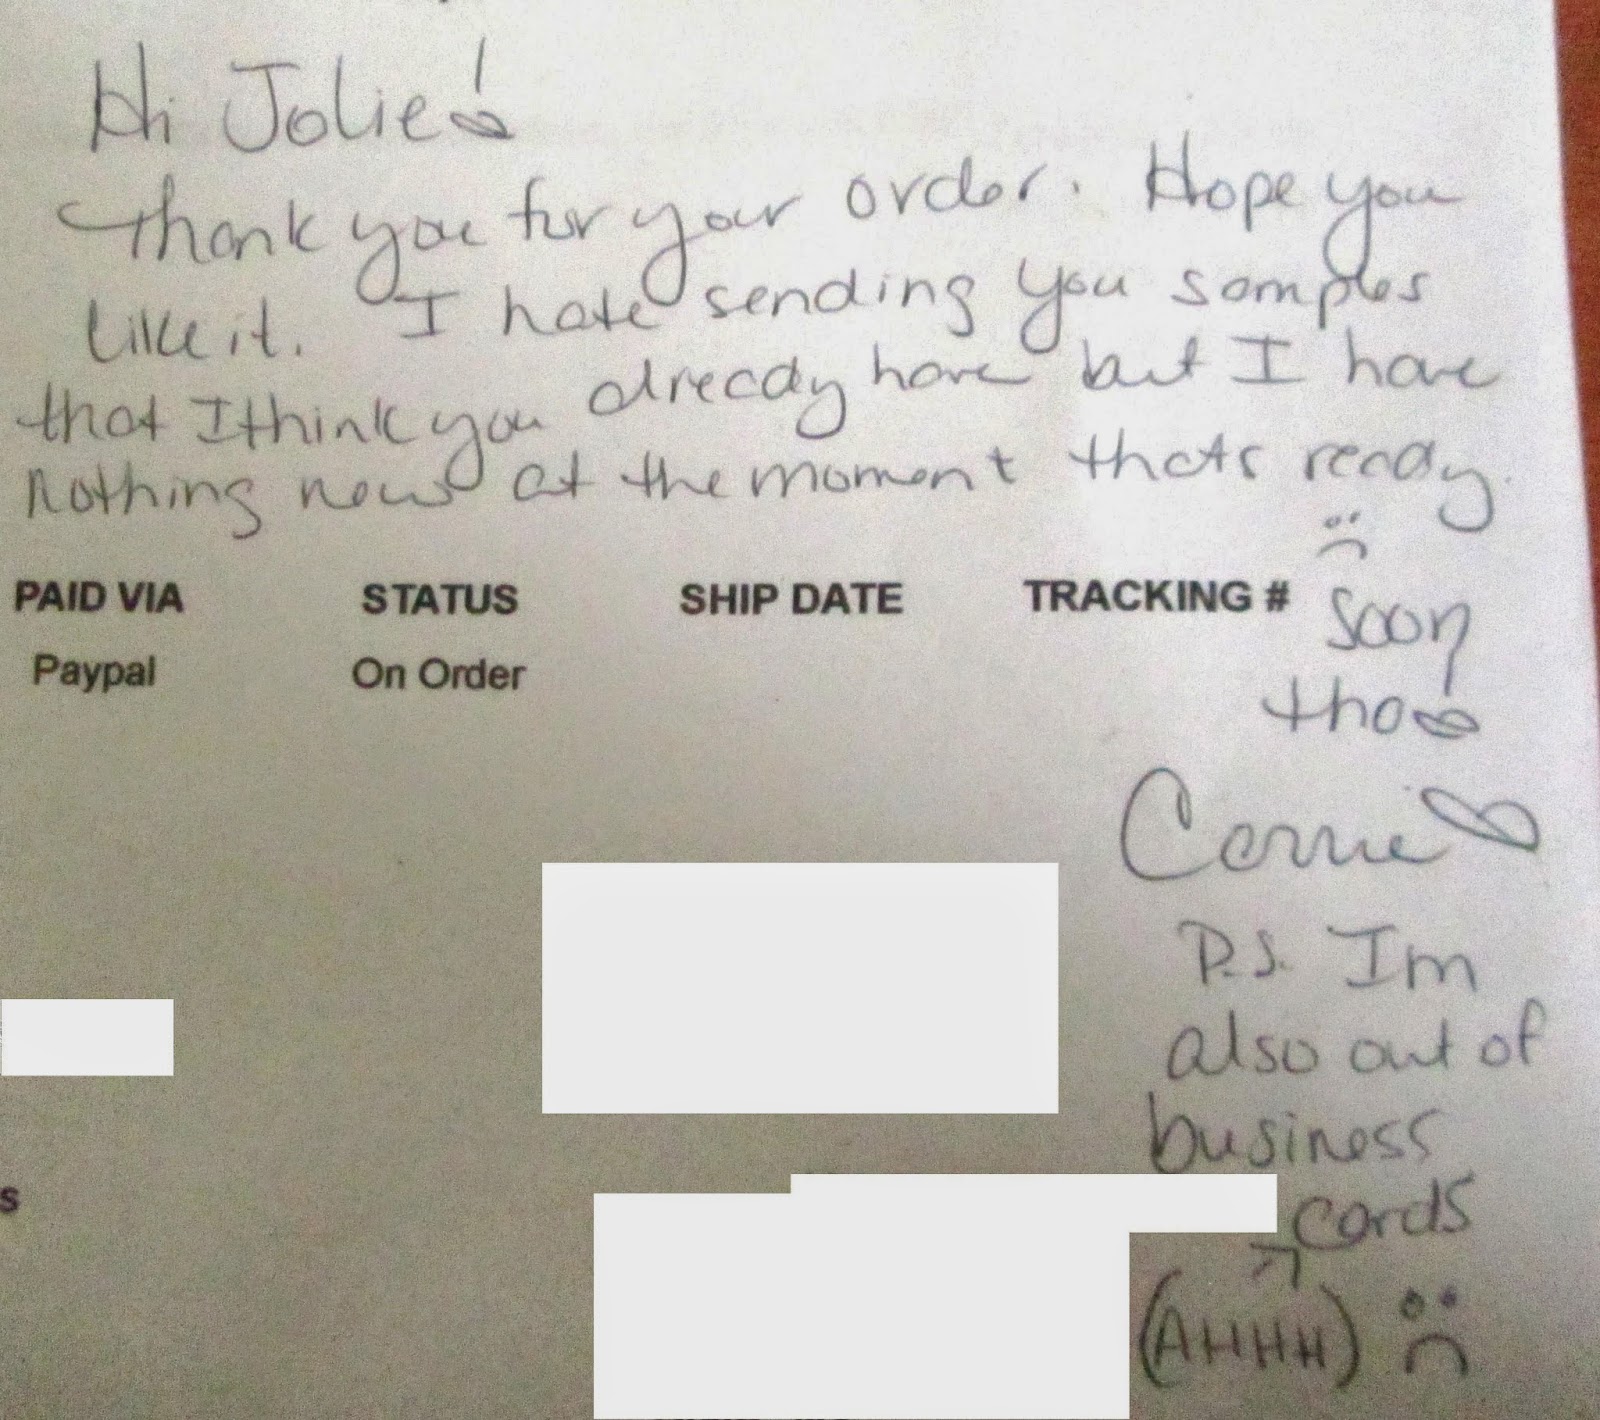 Hi Jolie!
Thank you for your order. Hope you
like it. I hate sending you samples
that I think you already have but I have
nothing new at the moment thats ready.
:(
PAID VIA STATUS SHIP DATE TRACKING #
Paypal On Order
Soon
tho!
Corrie
P.S. Im
also out of
business
cards
(AHHH) :(
s